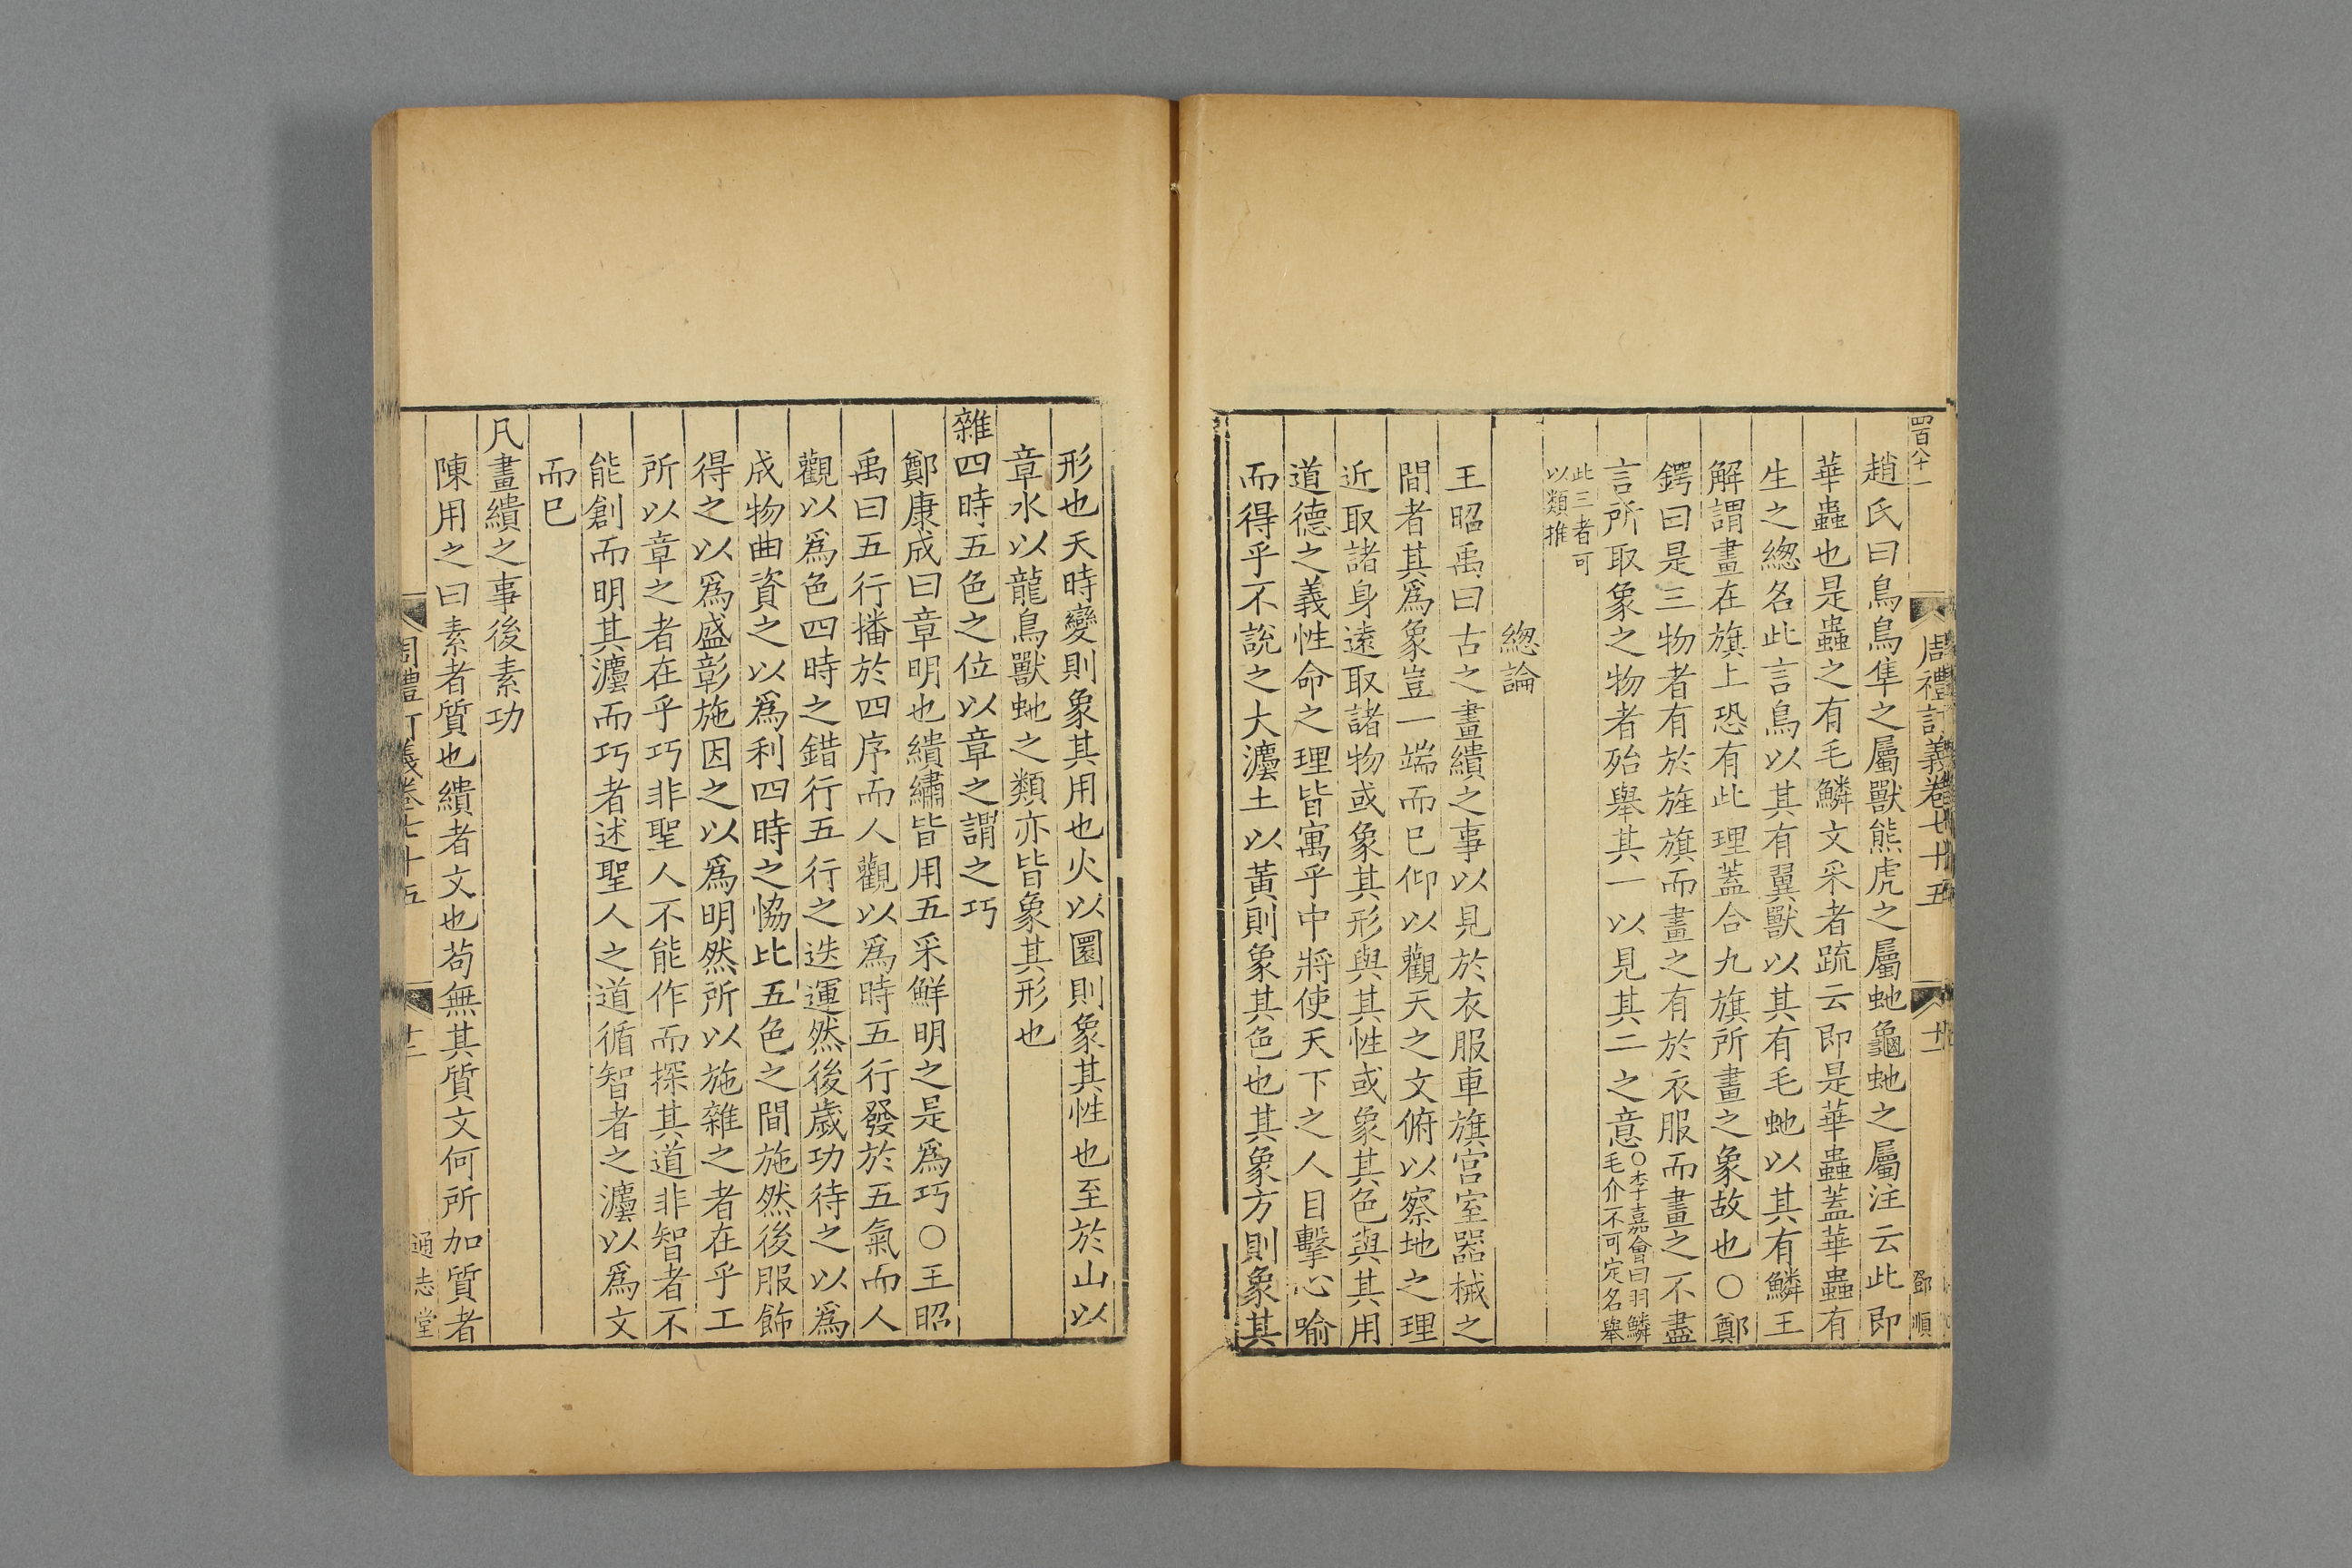 四百八十一
周禮訂義卷七十五
十一
鄧順
趙氏曰鳥鳥隼之屬獸熊虎之屬虵龜虵之屬注云此即
華蟲也是蟲之有毛鱗文采者疏云即是華蟲蓋華蟲有
生之緫名此言鳥以其有翼獸以其有毛虵以其有鱗王
解謂畫在旗上恐有此理蓋合九旗所畫之象故也○鄭
鍔曰是三物者有於旌旗而畫之有於衣服而畫之不盡
言所取象之物者殆舉其一以見其二之意○李嘉會曰羽鱗毛介不可定名舉
此三者可以類推
緫論
王昭禹曰古之畫繢之事以見於衣服車旗宫室器械之
間者其爲象豈一端而已仰以觀天之文俯以察地之理
近取諸身遠取諸物或象其形與其性或象其色與其用
道德之義性命之理皆寓乎中將使天下之人目擊心喻
而得乎不說之大灋土以黃則象其色也其象方則象其
形也天時變則象其用也火以圜則象其性也至於山以
章水以龍鳥獸虵之類亦皆象其形也
雜四時五色之位以章之謂之巧
鄭康成曰章明也繢繡皆用五采鮮明之是爲巧○王昭
禹曰五行播於四序而人觀以爲時五行發於五氣而人
觀以爲色四時之錯行五行之迭運然後歲功待之以爲
成物曲資之以爲利四時之恊比五色之間施然後服飾
得之以爲盛彰施因之以爲明然所以施雜之者在乎工
所以章之者在乎巧非聖人不能作而探其道非智者不
能創而明其灋而巧者述聖人之道循智者之灋以爲文
而已
凡畫繢之事後素功
陳用之曰素者質也繢者文也苟無其質文何所加質者
周禮訂義卷七十五
十二
通志堂